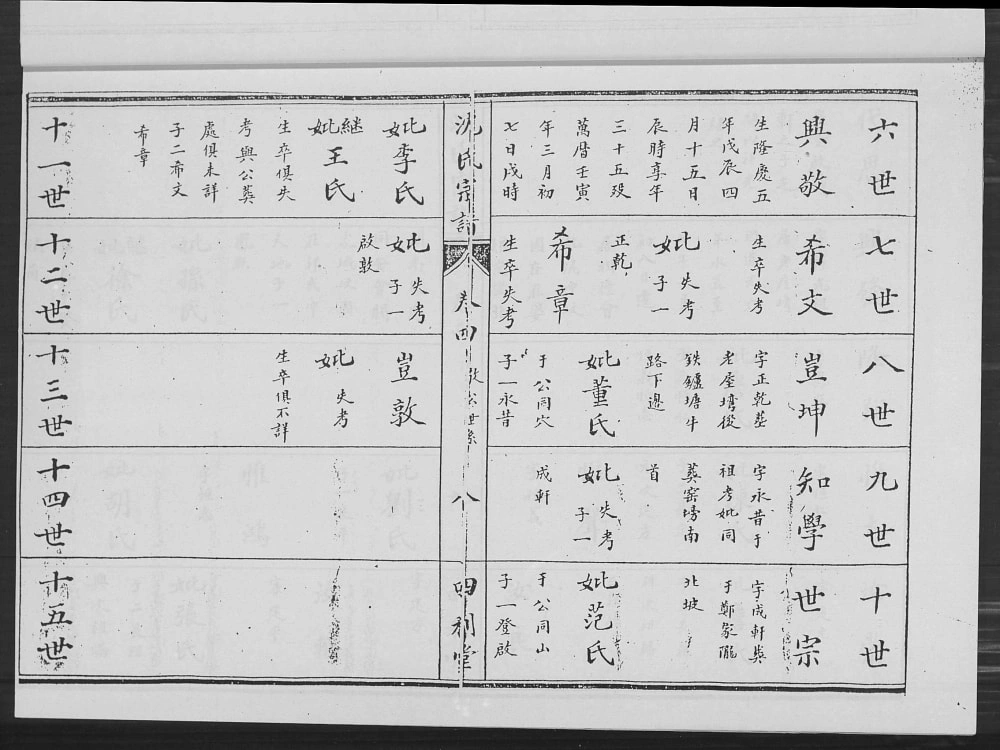 六世
興敬
生隆慶五
年戊辰四
月十五日
辰時享年
三十五歿
萬曆壬寅
年三月初
七日戌時
七世
希文
生卒失考
妣失考
子一
正乾
希章
生卒失考
八世
豈坤
字正乾塟
老屋塆後
鉄鑪塘牛
路下邊
妣董氏
于公同穴
子一永昔
九世
知學
字永昔于
祖考妣同
葬窑塝南
首
妣失考
子一
成軒
十世
世宗
字成軒塟
于鄭家隴
北坡
妣范氏
于公同山
子一登啟
沈氏宗譜
卷四
八
四利堂
妣李氏
継妣王氏
生卒俱失
考與公葬
處俱未詳
子二希文
希章
十一世
妣失考
子一
啟敦
十二世
豈敦
妣失考
生卒俱不詳
十三世
十四世
十五世